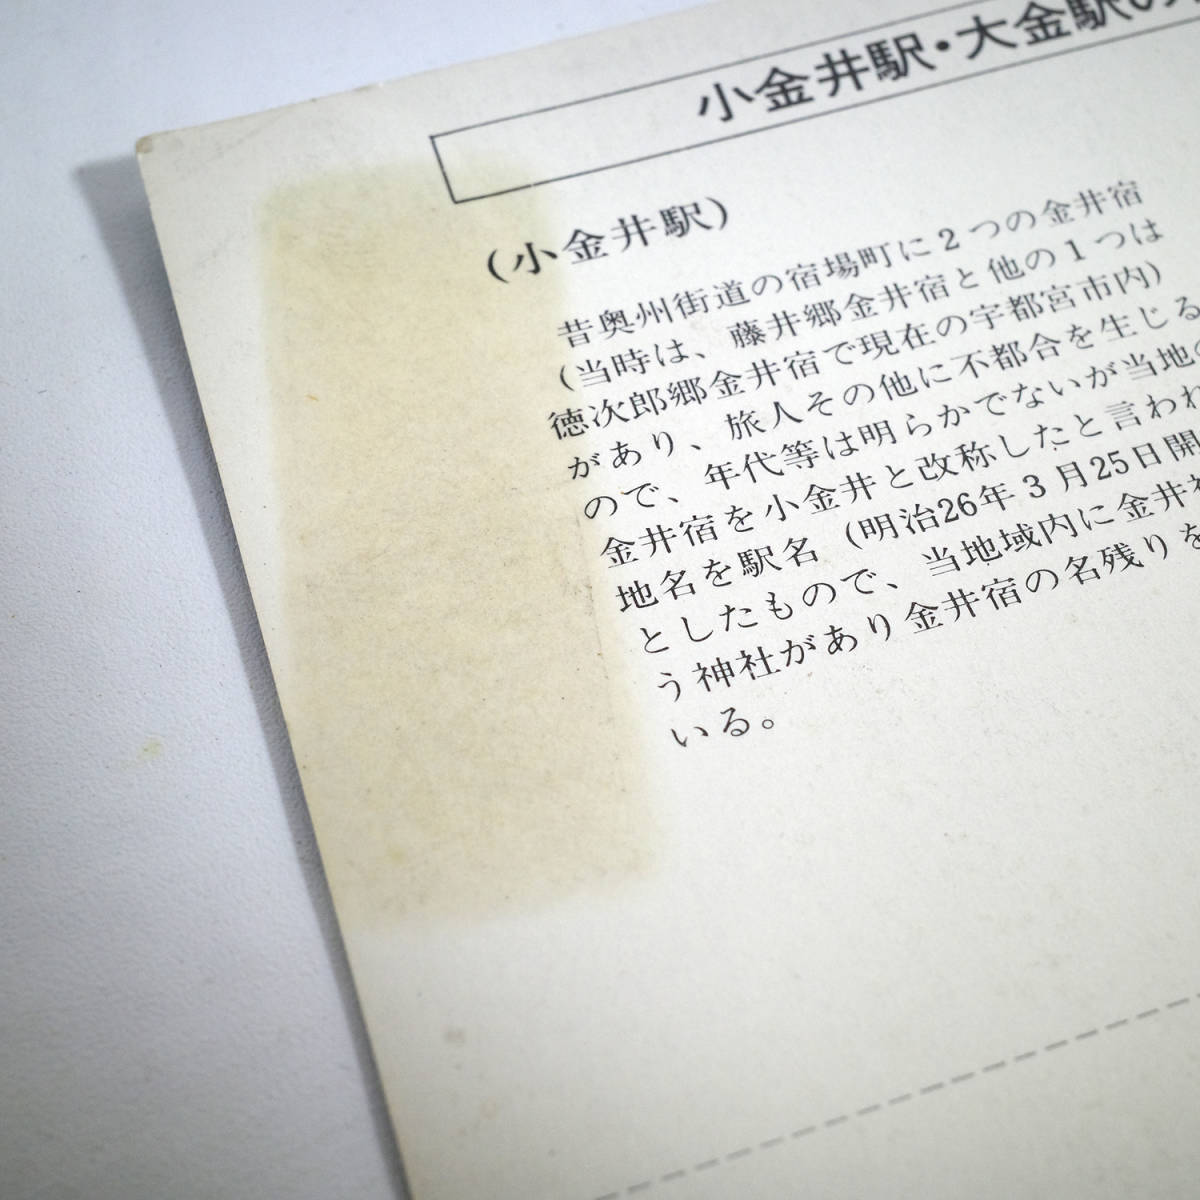 小金井駅・大金駅の
(小金井駅)
昔奥州街道の宿場町に2つの金井宿
(当時は、藤井郷金井宿と他の1つは
徳次郎郷金井宿で現在の宇都宮市内)
があり、旅人その他に不都合を生じる
ので、年代等は明らかでないが当地の
金井宿を小金井と改称したと言われ
地名を駅名(明治26年3月25日開
としたもので、当地域内に金井神
う神社があり金井宿の名残りを
いる。